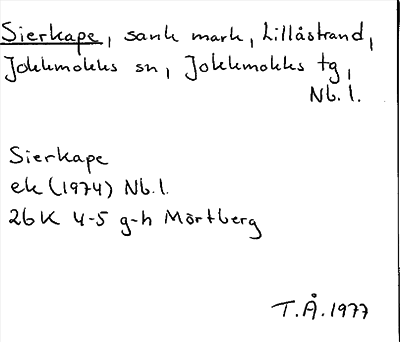 Sierkape, sank mark, Lillåstrand,
Jokkmokks sn, Jokkmokks tg,
Nb. l.
Sierkape
ek (1974) Nb. l.
26K 4-5 g-h Mörtberg
T.Å. 1977